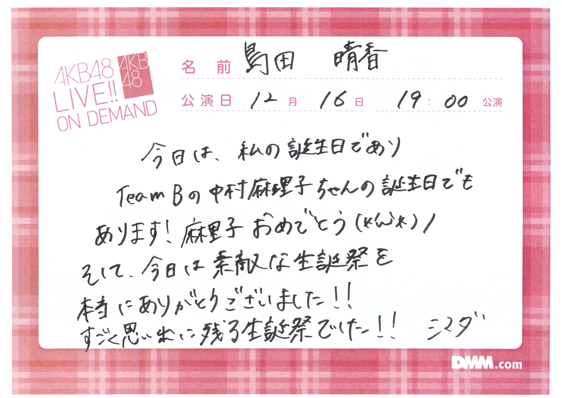 AKB48
LIVE!!
ON DEMAND
AKB
48
名 前 島田 晴香
公演日 12月 16日 19:00 公演
今日は、私の誕生日であり
Team Bの中村麻里子ちゃんの誕生日でも
あります! 麻里子 おめでとう(*'ω'*)ノ
そして、今日は素敵な生誕祭を
本当にありがとうございました!!
すごく思い出に残る生誕祭でした!! シマダ
DMM.com